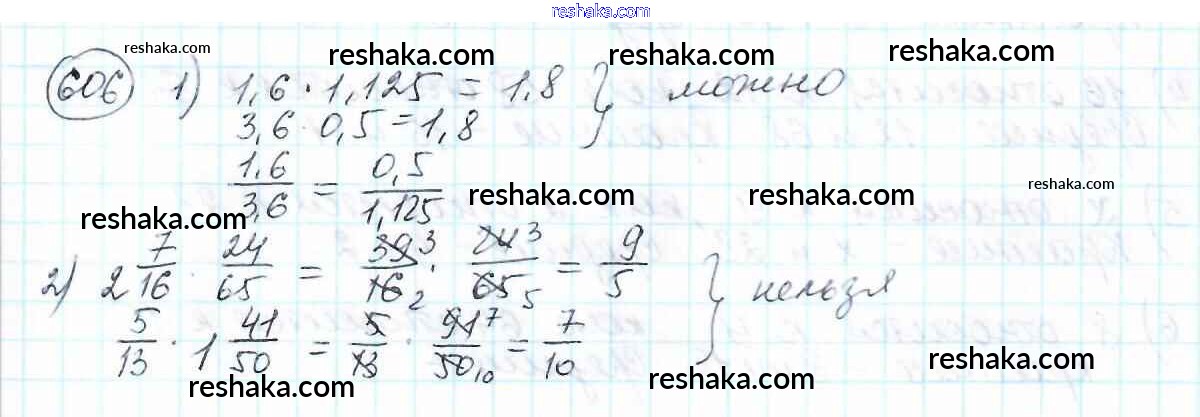 reshaka.com
reshaka.com reshaka.com reshaka.com
606 1) 1,6 · 1,125 = 1.8 } можно
3,6 · 0,5 = 1,8
1.6/3,6 = 0,5/1,125
reshaka.com reshaka.com reshaka.com reshaka.com
2) 2 7/16 · 24/65 = 39 3/16 2 · 24 3/65 5 = 9/5 } нельзя
5/13 · 1 41/50 = 5/13 · 91 7/50 10 = 7/10
reshaka.com reshaka.com reshaka.com